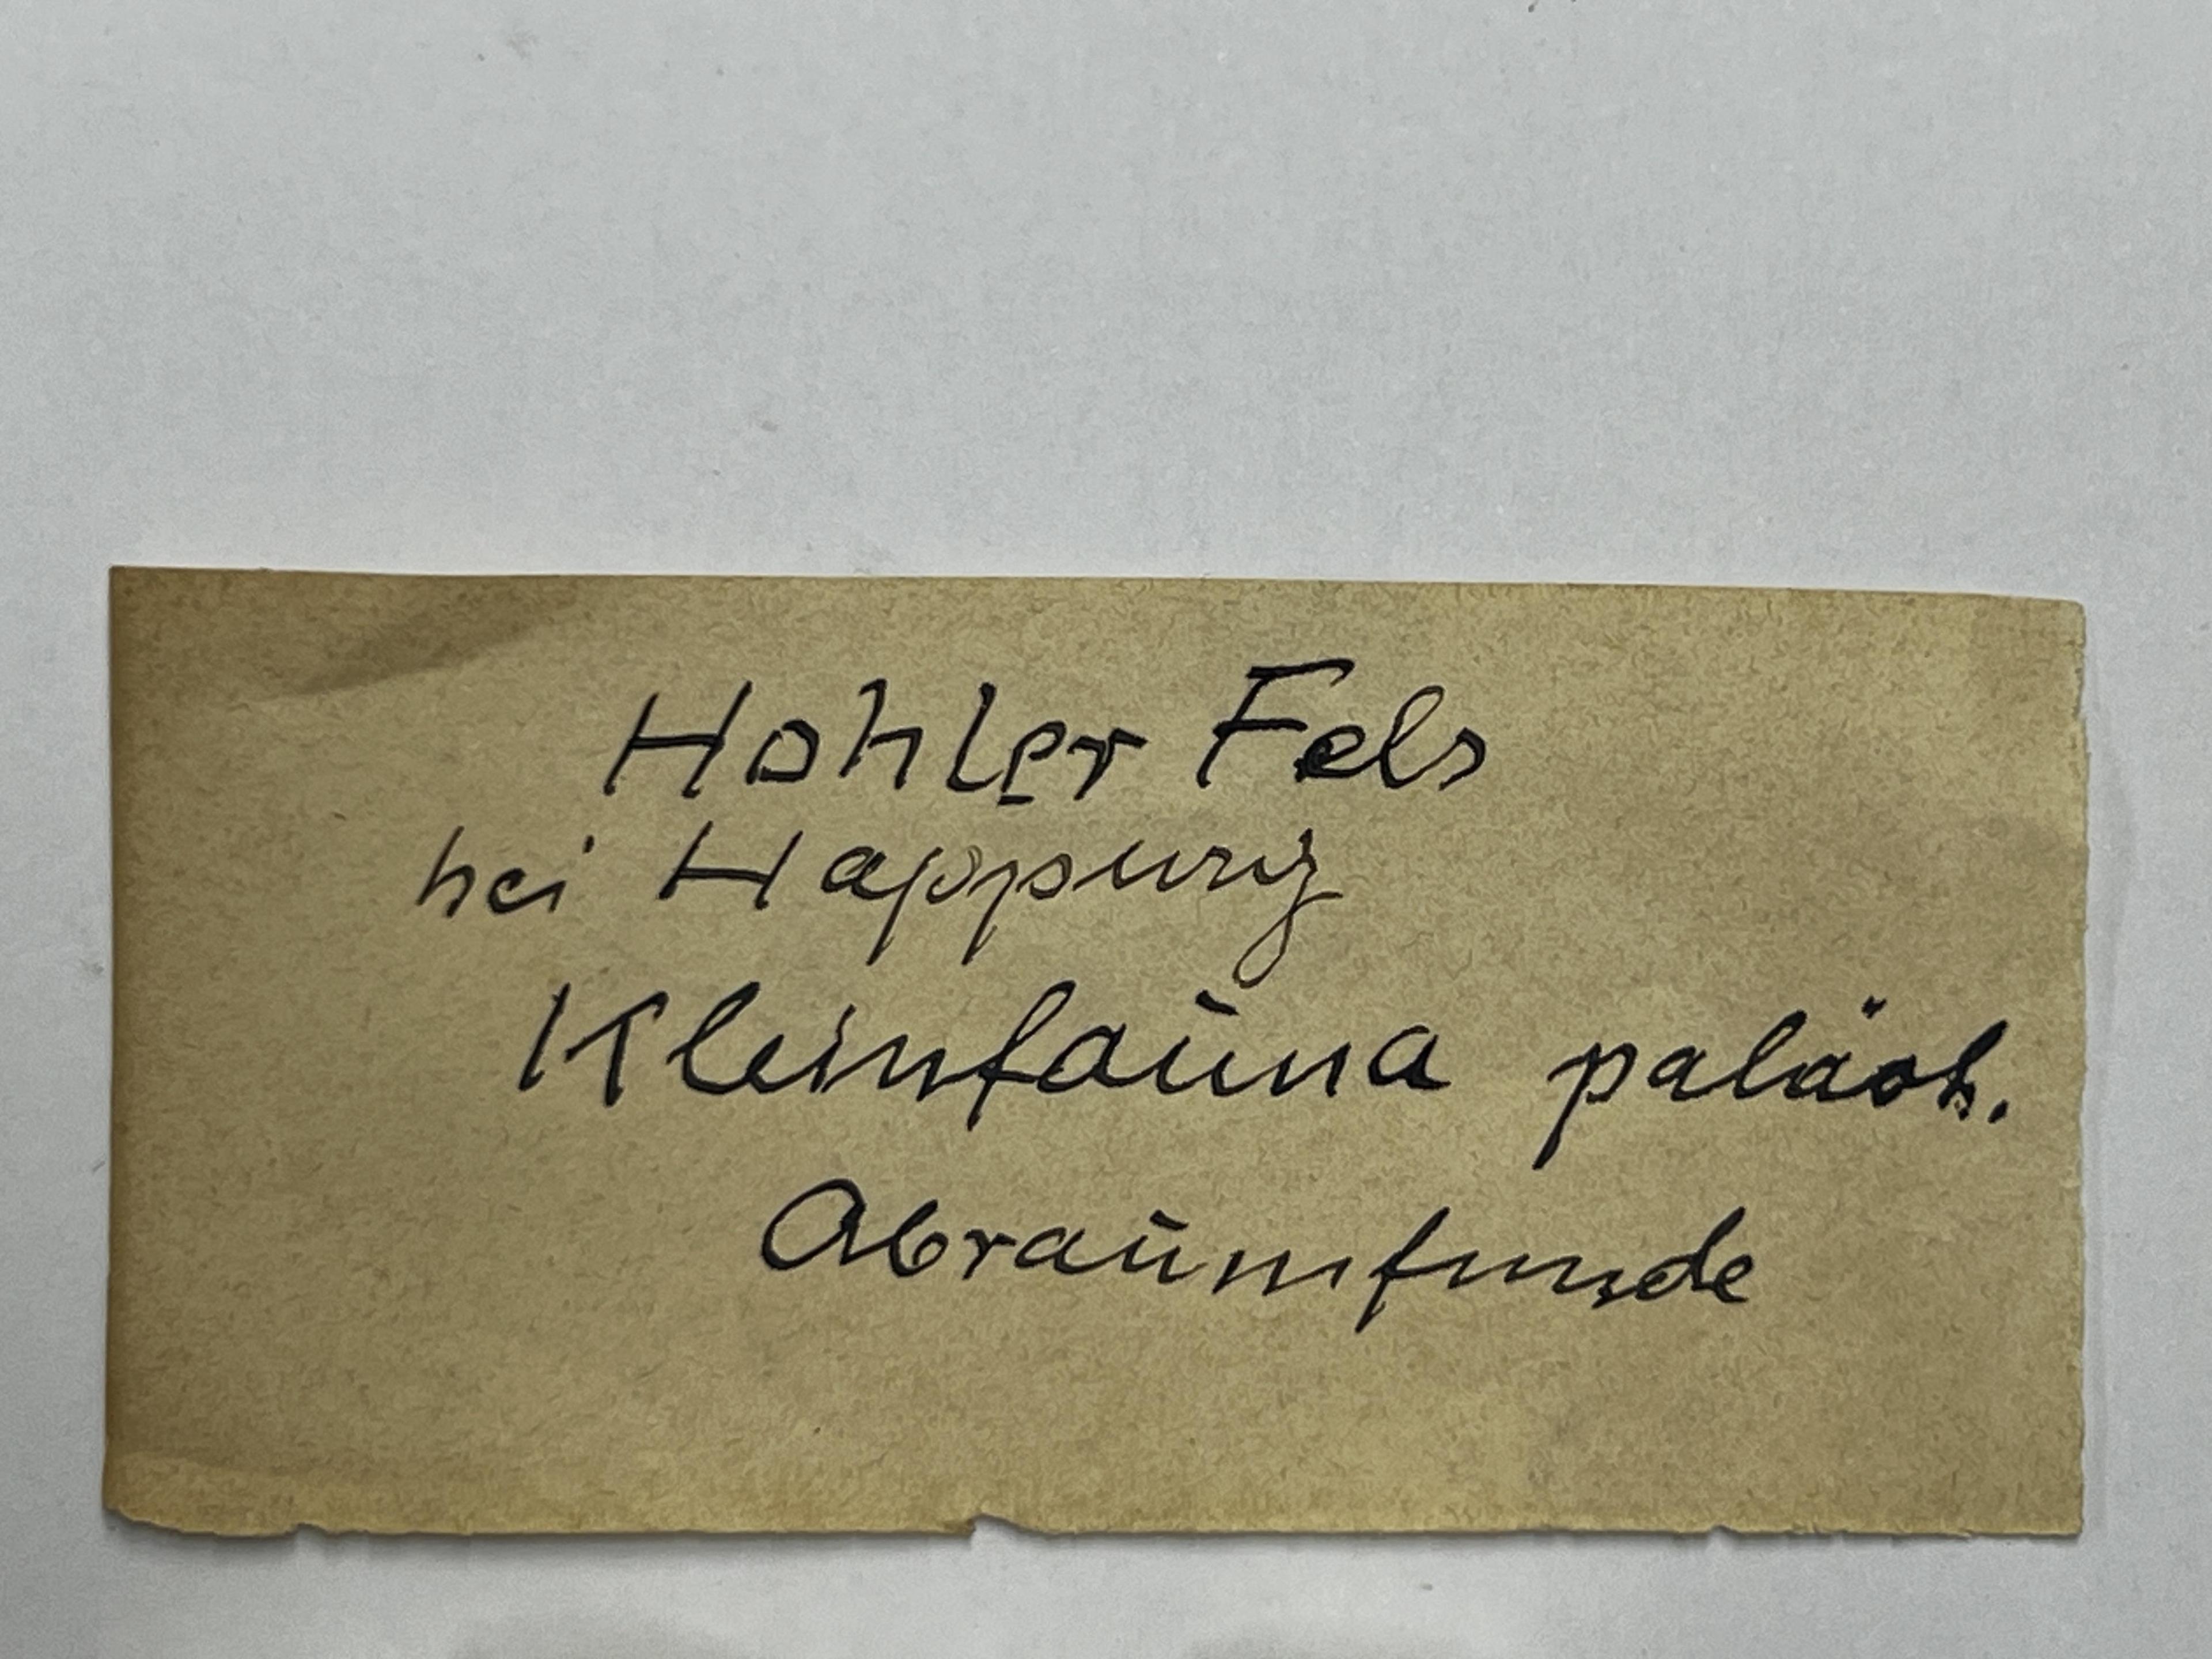 Hohler Fels
bei Happurg
Kleinfauna paläoh.
Abraumfunde